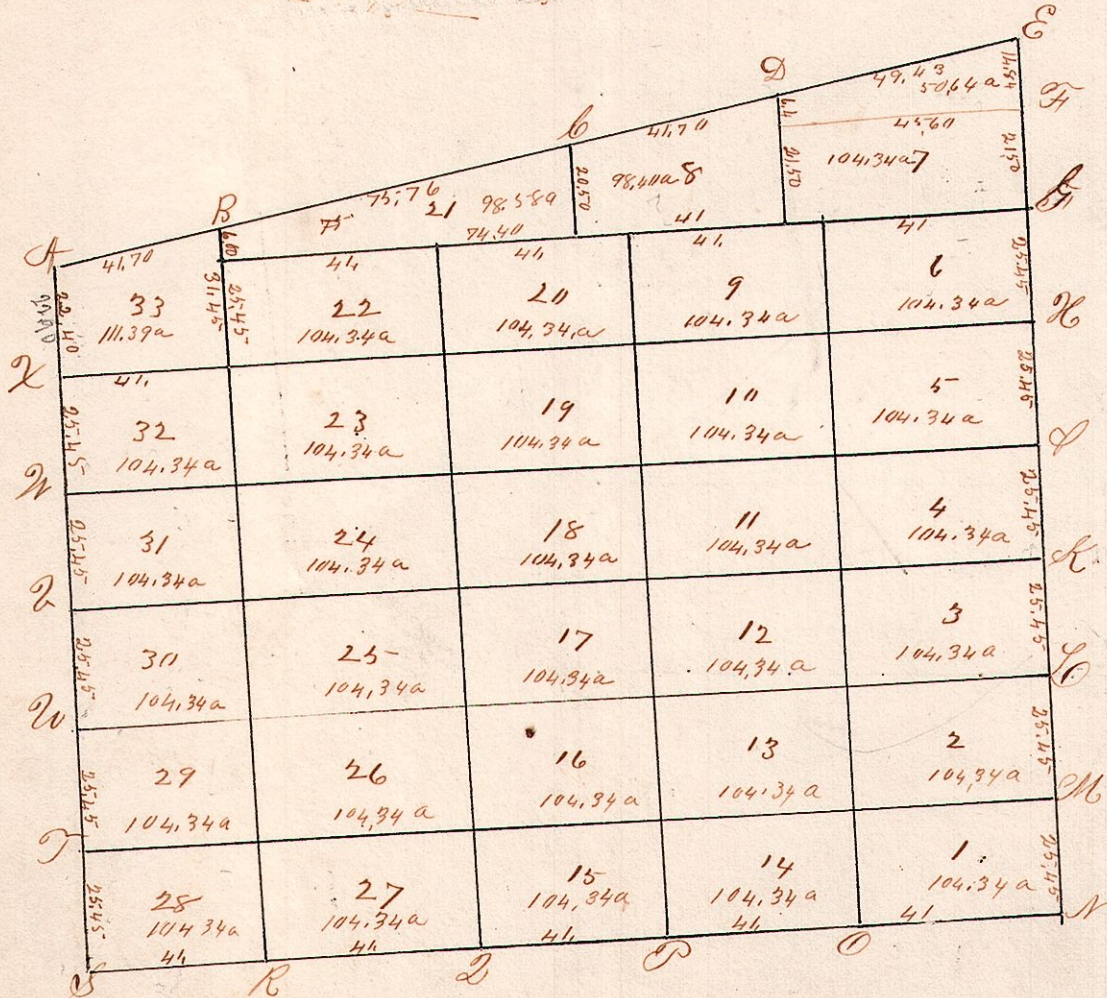 E
D
49.43
50,64a
14,84
F
C
41,70
6,4
45,60
21,50
21,50
104.34a 7
G
75,76
20,50
98,40a 8
21
98.58a
B
75
74.40
41
A
41,70
6,00
41,
41,
41,
41
22,40
33
111.39a
31,45
25,45
22
104.34a
20
104,34,a
9
104.34a
6
104.34a
25.45
H
X
41,
25,45
32
104.34a
23
104.34a
19
104.34a
10
104.34a
5
104.34a
25.45
I
W
25,45
31
104.34a
24
104.34a
18
104,34a
11
104,34a
4
104.34a
25,45
K
V
25,45
30
104,34a
25
104,34a
17
104,34a
12
104,34a
3
104,34a
25,45
L
U
25,45
29
104,34a
26
104,34a
16
104,34a
13
104,34a
2
104,34a
25,45
M
T
25,45
28
104 34a
27
104.34a
15
104,34a
14
104,34a
1
104.34a
25,45
N
41,
41,
41,
41,
41
S
R
Q
P
O